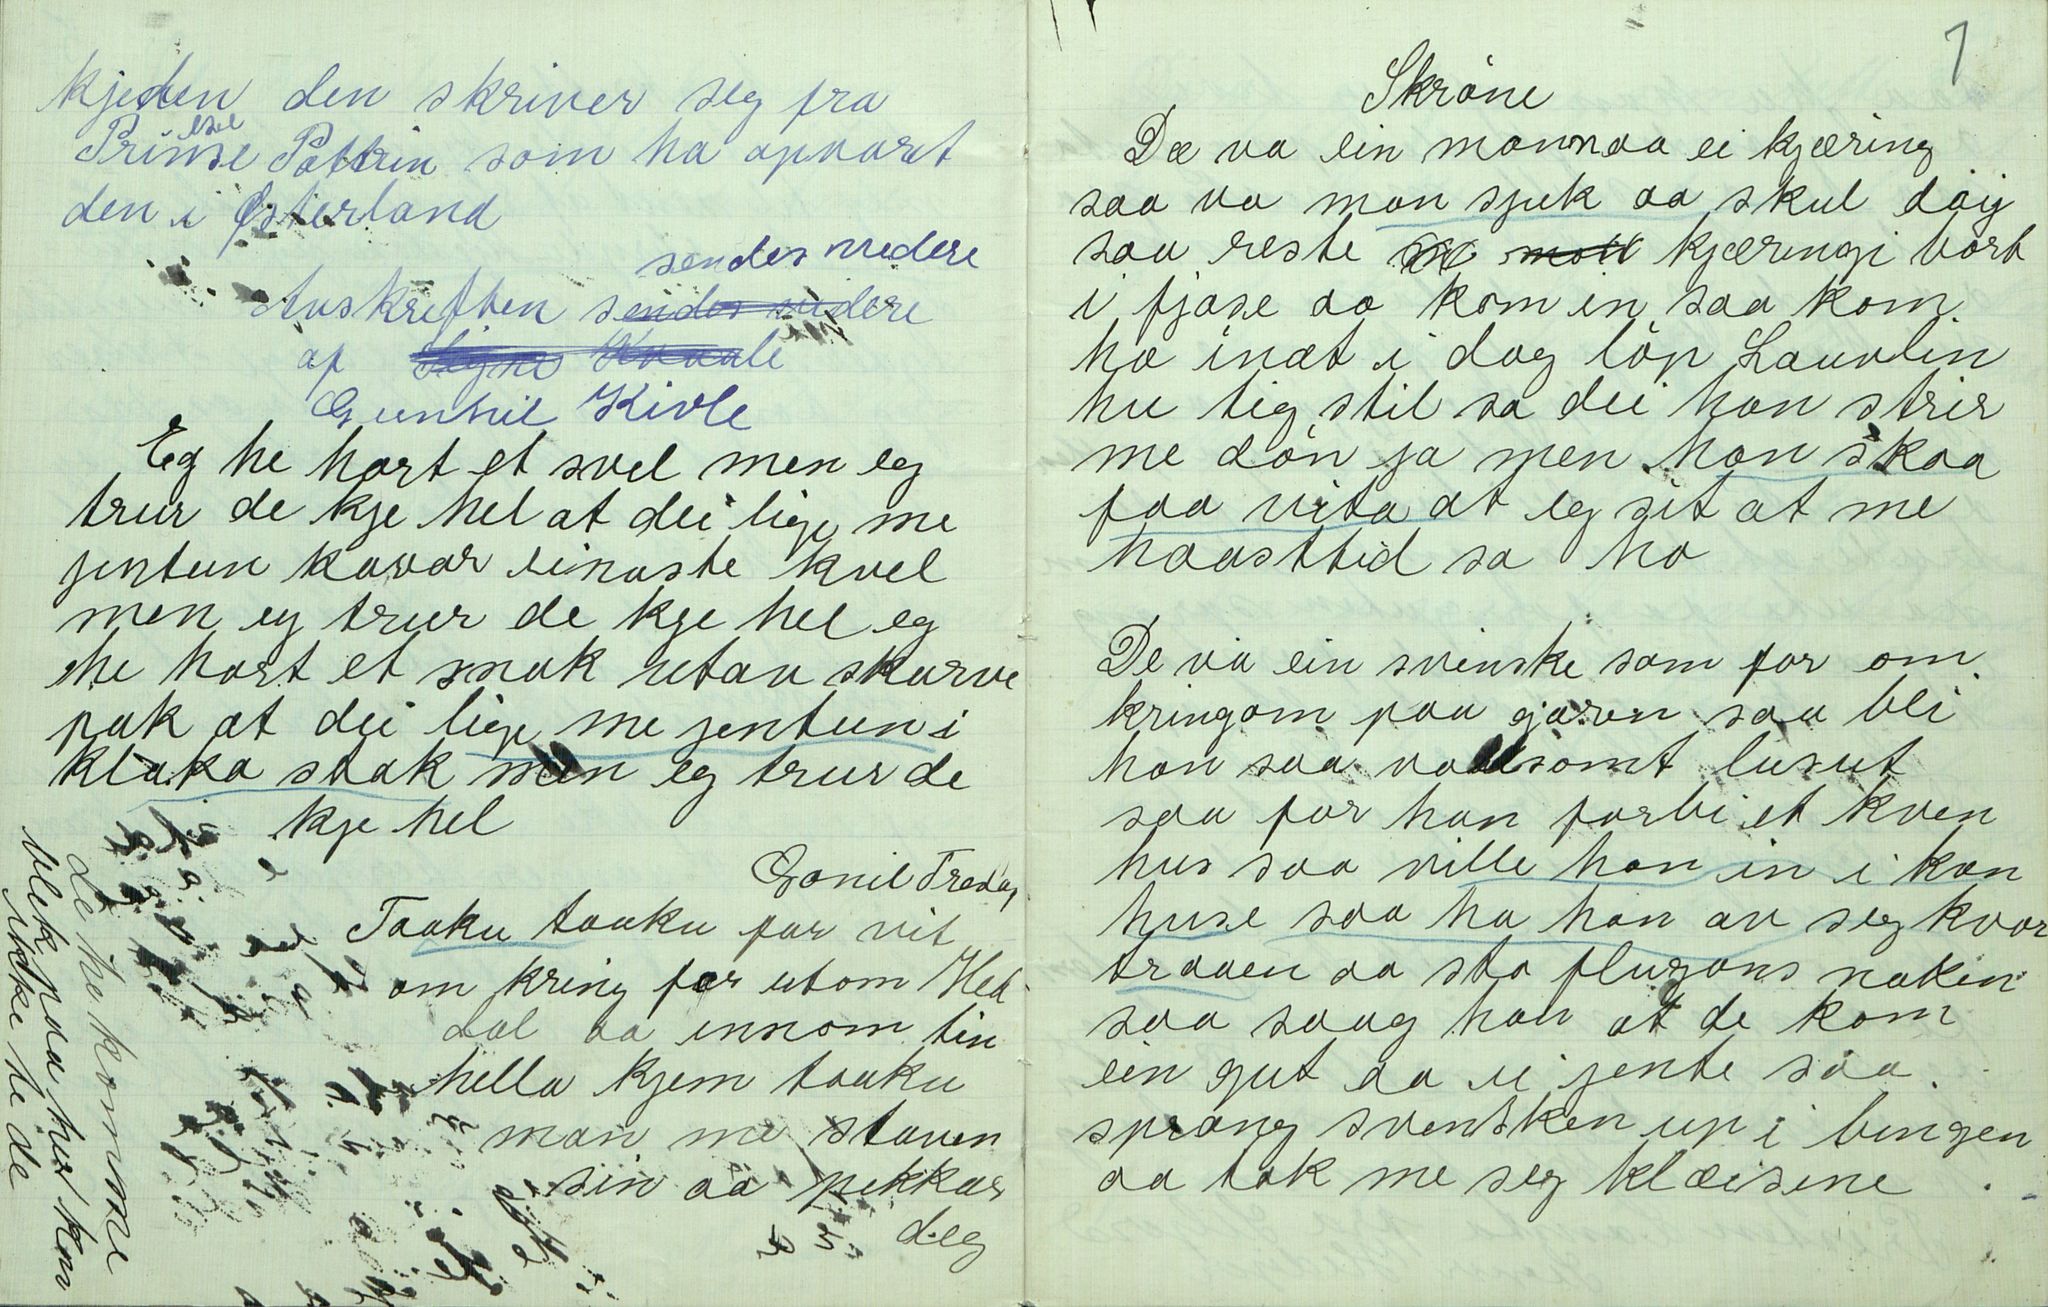 kjeden den skriver seg fra
Prinsesse Pottrin som ha opvart
den i Østerland
sendes videre
Avskreften sendes videre
af Signe Kvaale
Gunhil Kivle
Eg he hørt et svel men eg
trur de kje hel at dei lige me
jentun kavar einaste kvel
men eg trur de kje hel eg
he hørt et snak utav skarve
pak at dei lige me jentun i
klaka stak men eg trur de
kje hel
Gonil Tredag
Taaku taaku far vit
om kring far utom Hed
dal aa innom tin
hella kjem taaku
man me staven
sin aa pekkar
deg
de ha komme
blek naa hur kom
ikke he de
7
Skrøne
Dæ va ein mann aa ei kjæring
saa va man sjuk aa skul døiy
saa reste kjæringi bort
i fjøse aa kom in saa kom
ho inat i dag løp Lauvlin
hu tig stil sa dei han strir
me døn ja men han skaa
faa vita at eg sit at me
haasttid sa ho
De va ein svenske som for om
kringom paa gjøren saa bli
han saa voldsomt lusut
saa for han forbi et kven
hus saa ville han in i kvn
huse saa ha han av seg kvar
traaen aa sto flugans nakin
saa saag han at de kom
ein gut aa ei jente saa
sprang svensken up i bingen
aa tok me seg klæisene